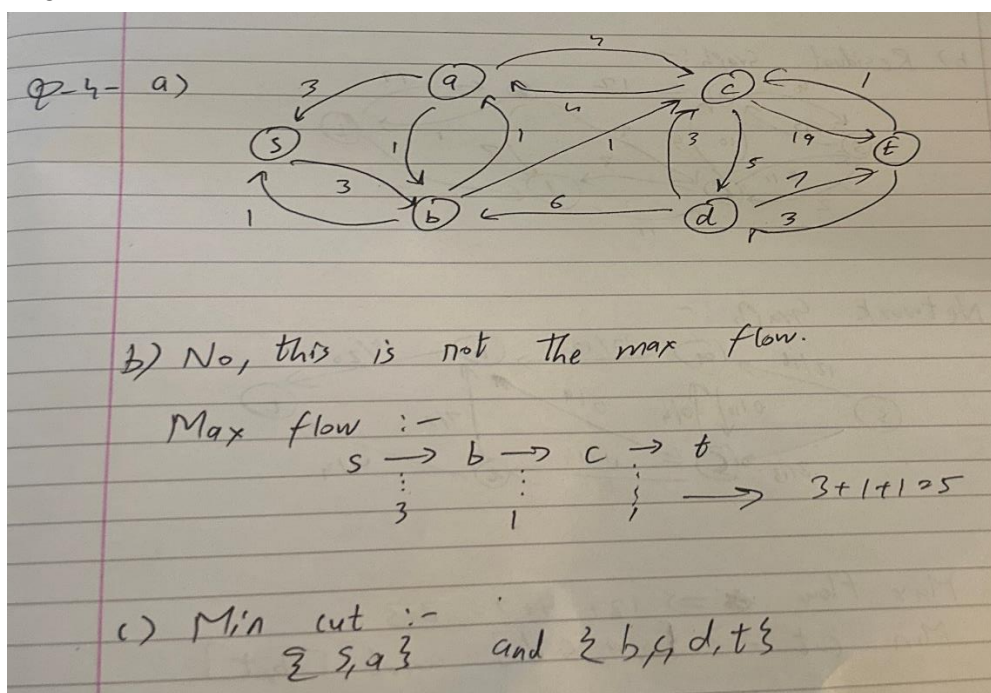 Q-4- a)
3 a 4 c 1
4
s 1 1 1 3 5 19 t
3
1 b 6 d 7 3
b) No, this is not the max flow.
Max flow :-
s → b → c → t
3 1 1 → 3+1+1=5
c) Min cut :-
{ S, a } and { b, c, d, t }